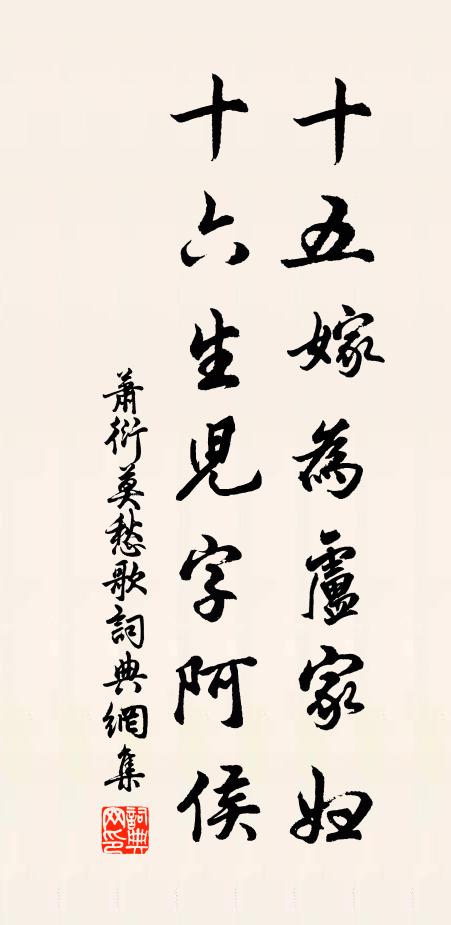 十五嫁為盧家婦
十六生兒字阿侯
蕭衍莫愁歌詞典網集
詞典網印